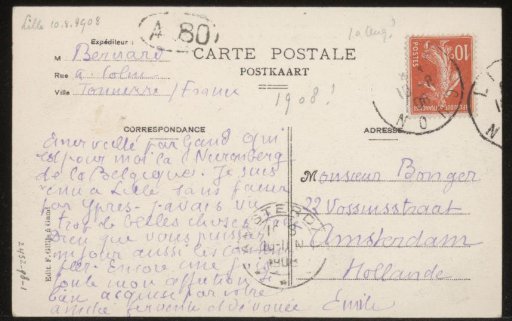 Lille 10.8.1908
A 80
10 Aug?
Expéditeur :
M Bernard
Rue à Colin
Ville Tonnerre / France
CARTE POSTALE
POSTKAART
1908!
10c
POSTES
CORRESPONDANCE
ADRESSE
Emerveillé par Gand qui
est pour moi la Nuremberg
de la Belgique. Je suis
venu à Lille sans passer
par Ypres. J'avais vu
trop de belles choses
bien que vous puissiez
un jour aussi les
Encore une fois
toute mon affection
bien acquise par votre
amitié fervente et dévouée
Emile
Monsieur Bonger
22 Vossiusstraat
Amsterdam
Hollande
AMSTERDAM
NORD
Edit. F.